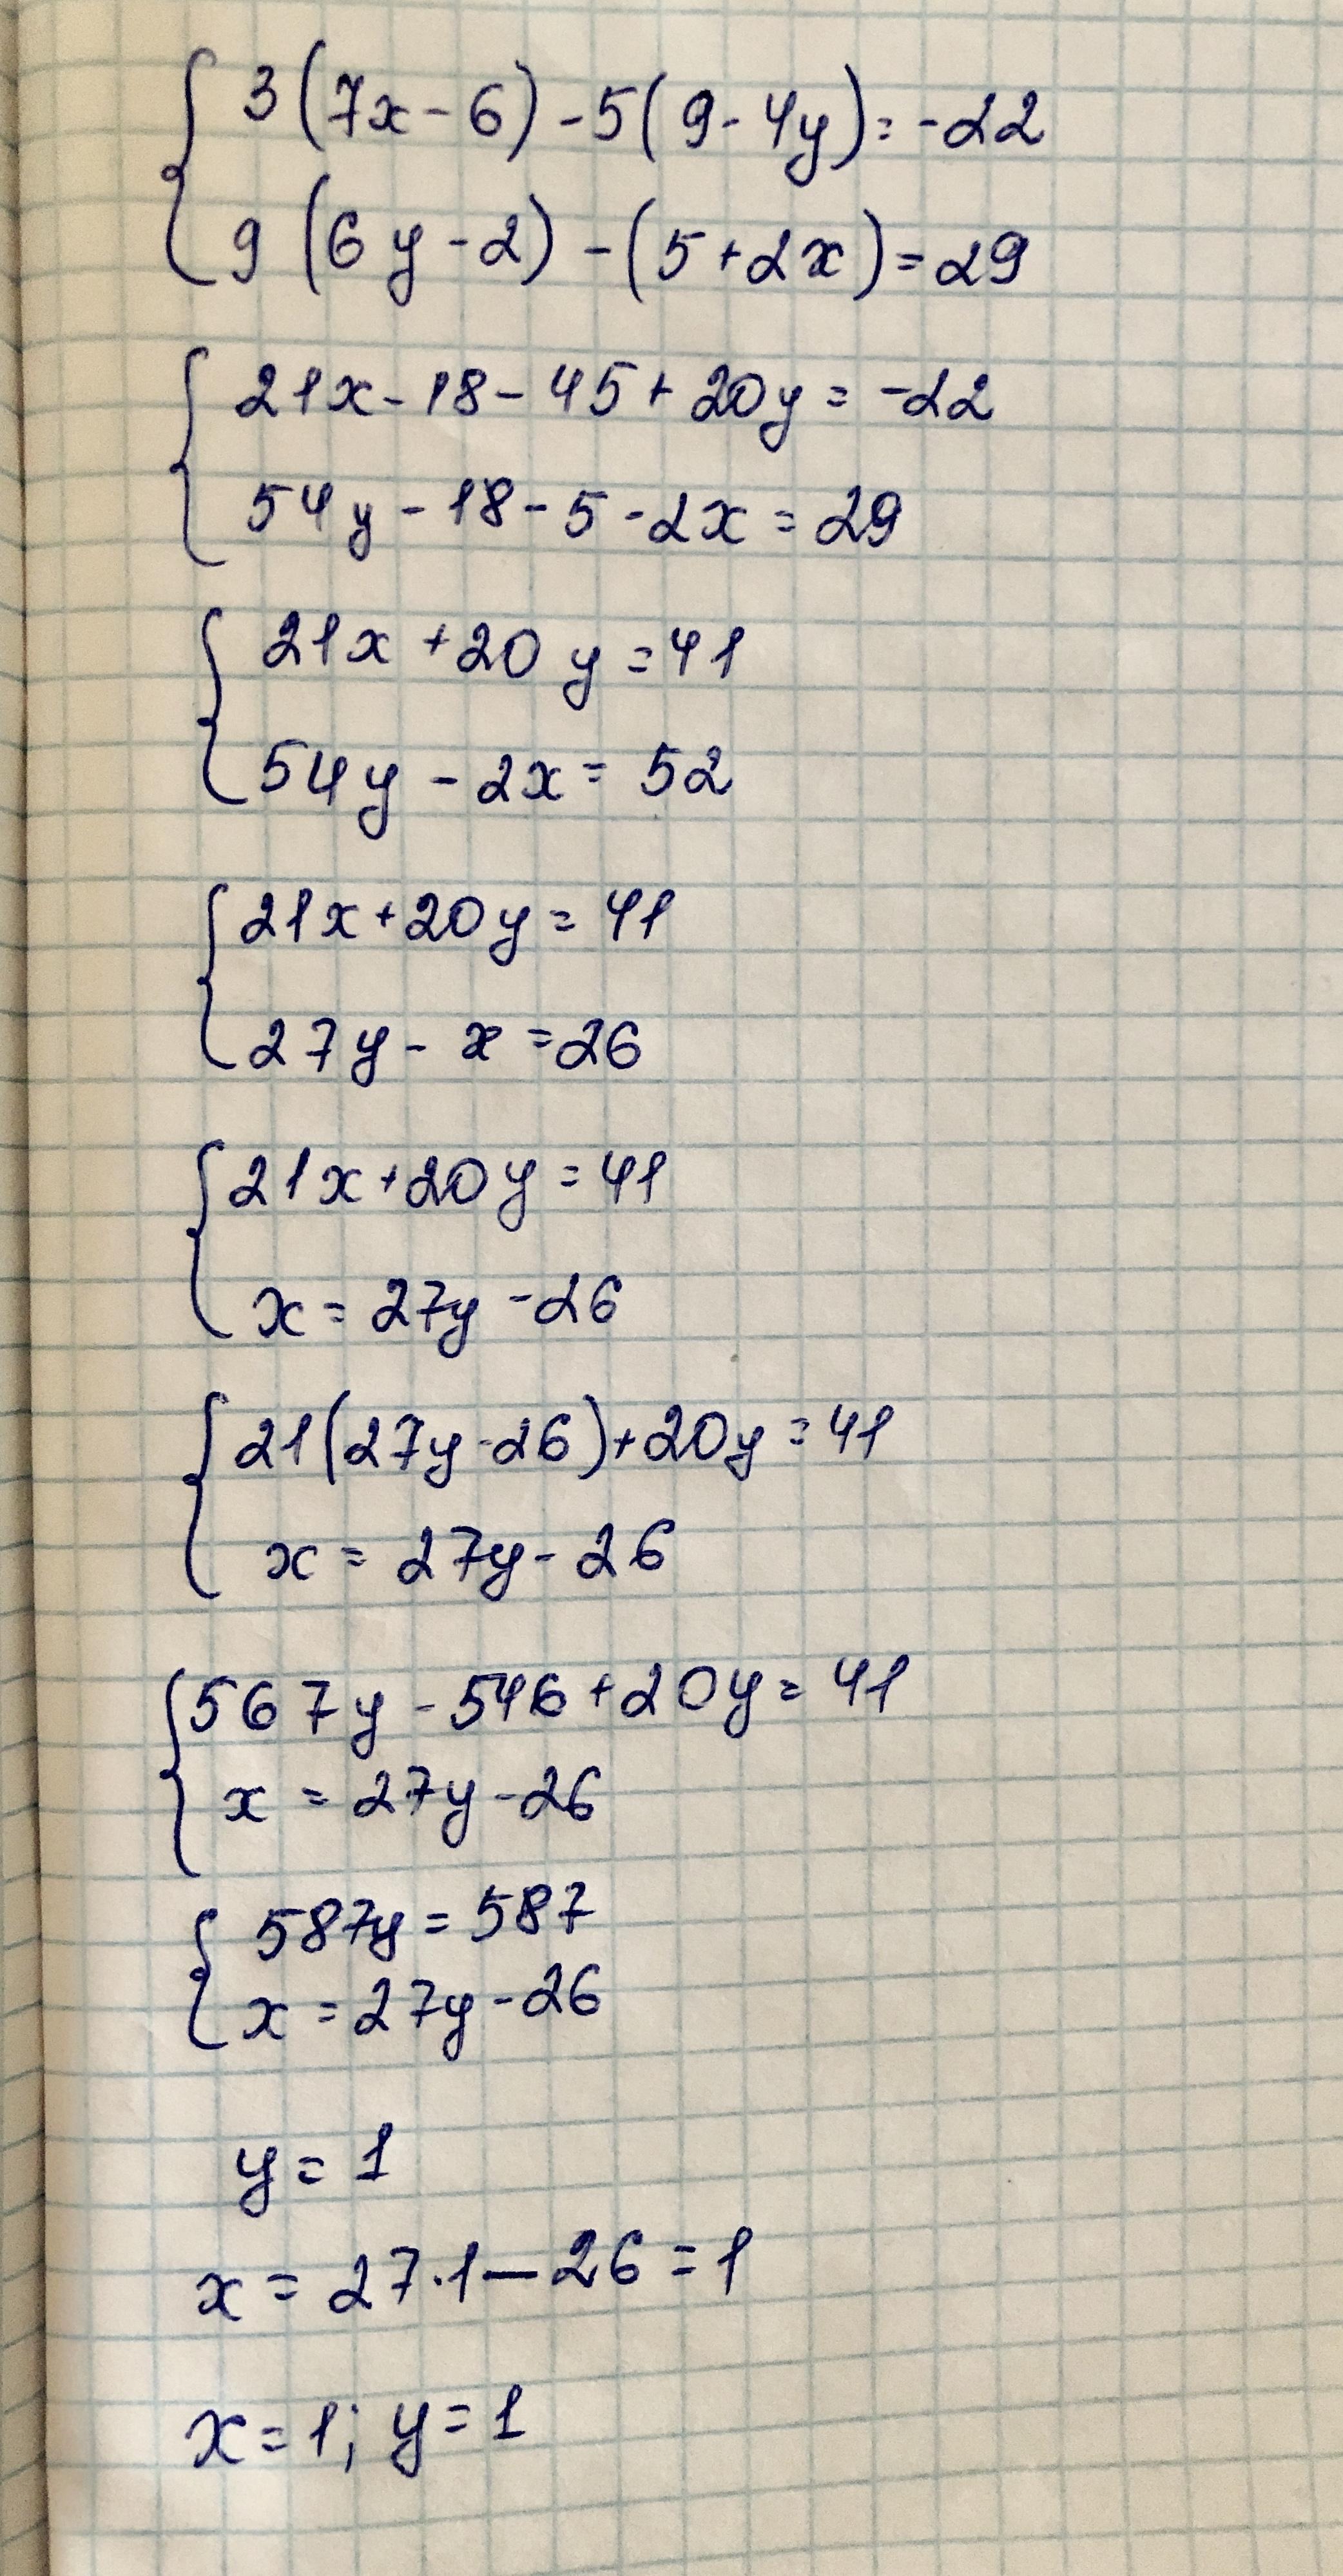 3(7x-6)-5(9-4y)=-22
9(6y-2)-(5+2x)=29
21x-18-45+20y=-22
54y-18-5-2x=29
21x+20y=41
54y-2x=52
21x+20y=41
27y-x=26
21x+20y=41
x=27y-26
21(27y-26)+20y=41
x=27y-26
567y-546+20y=41
x=27y-26
587y=587
x=27y-26
y=1
x=27·1-26=1
x=1; y=1